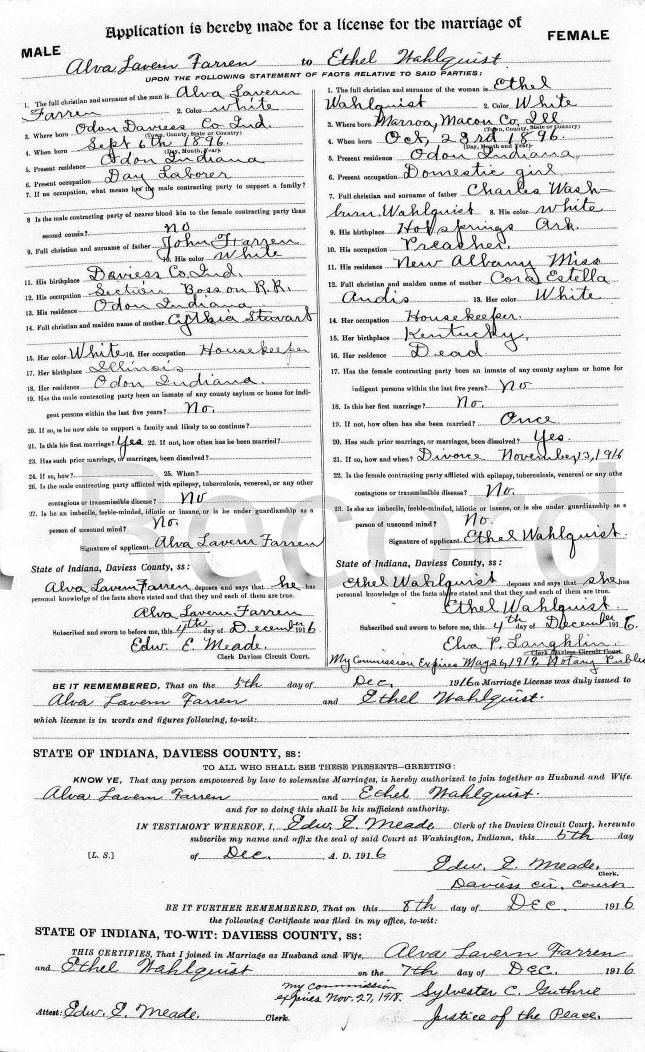 Application is hereby made for a license for the marriage of
MALE
FEMALE
Alva Lavern Farren to Ethel Wahlquist
UPON THE FOLLOWING STATEMENT OF FACTS RELATIVE TO SAID PARTIES:
1. The full christian and surname of the man is Alva Lavern
Farren 2. Color White
3. Where born Odon Daviess Co Ind.
(Town, County, State or Country)
4. When born Sept 6th 1896.
(Day, Month, Year)
5. Present residence Odon Indiana
6. Present occupation Day Laborer
7. If no occupation, what means has the male contracting party to support a family?
8 Is the male contracting party of nearer blood kin to the female contracting party than
second cousin? no
9. Full christian and surname of father John Farren
10. His color White
11. His birthplace Daviess Co, Ind.
12. His occupation Section Boss on R.R.
13. His residence Odon Indiana
14. Full christian and maiden name of mother Cynthia Stewart
15. Her color White 16. Her occupation Housekeeper
17. Her birthplace Illinois
18. Her residence Odon Indiana.
19. Has the male contracting party been an inmate of county asylum or home for indi-
gent persons within the last five years? No.
20. If so, is he now able to support a family and likely to so continue?
21. Is this his first marriage? Yes 22. If not, how often has he been married?
23. Has such prior marriage, or marriages, been dissolved?
24. If so, how? 25. When?
26. Is the male contracting party afflicted with epilepsy, tuberculosis, venereal, or any other
contagious or transmissible disease? No
27. Is he an imbecile, feeble-minded, idiotic or insane, or is he under guardianship as a
person of unsound mind? No.
Signature of applicant. Alva Lavern Farren
State of Indiana, Daviess County, ss:
Alva Lavern Farren deposes and says that he has
personal knowledge of the facts above stated and that they and each of them are true.
Alva Lavern Farren
Subscribed and sworn to before me, this 4th day of December 1916.
Edw. E. Meade.
Clerk Daviess Circuit Court.
1. The full christian and surname of the woman is Ethel
Wahlquist 2. Color White
3. Where born Marroa, Macon Co, Ill
(Town, County, State or Country)
4. When born Oct, 23rd 1896.
(Day, Month and Year)
5. Present residence Odon Indiana
6. Present occupation Domestic girl
7. Full christian and surname of father Charles Wash
burn Wahlquist 8. His color White
9. His birthplace Hot springs Ark.
10. His occupation Preacher.
11. His residence New Albany Miss
12. Full christian and maiden name of mother Cora Estella
Andis 13. Her color White
14. Her occupation Housekeeper.
15. Her birthplace Kentucky,
16. Her residence Dead.
17. Has the female contracting party been an inmate of any county asylum or home for
indigent persons within the last five years? No
18. Is this her first marriage? No.
19. If not, how often has she been married? Once
20. Has such prior marriage, or marriages, been dissolved? Yes.
21. If so, how and when? Divorce November 3, 1916
22. Is the female contracting party afflicted with epilepsy, tuberculosis, venereal, or any other
contagious or transmissible disease? No.
23. Is she an imbecile, feeble-minded, idiotic or insane, or is she under guardianship as a
person of unsound mind? No.
Signature of applicant. Ethel Wahlquist.
State of Indiana, Daviess County, ss:
Ethel Wahlquist deposes and says that she has
personal knowledge of the facts above stated and that they and each of them are true.
Ethel Wahlquist.
Subscribed and sworn to before me, this 4th day of December 1916.
Elva P. Laughlin.
Clerk Daviess Circuit Court.
My Commission Expires May 26, 1919, Notary Public
BE IT REMEMBERED, That on the 5th day of Dec, 1916 a Marriage License was duly issued to
Alva Lavern Farren and Ethel Wahlquist.
which license is in words and figures following, to-wit:
STATE OF INDIANA, DAVIESS COUNTY, ss:
TO ALL WHO SHALL SEE THESE PRESENTS—GREETING:
KNOW YE, That any person empowered by law to solemnize Marriages, is hereby authorized to join together as Husband and Wife.
Alva Lavern Farren and Ethel Wahlquist.
and for so doing this shall be his sufficient authority.
IN TESTIMONY WHEREOF, I, Edw. E. Meade Clerk of the Daviess Circuit Court, hereunto
subscribe my name and affix the seal of said Court at Washington, Indiana, this 5th day
[L. S.] of Dec. A. D. 1916
Edw. E. Meade.
Clerk.
Daviess cir. court
BE IT FURTHER REMEMBERED, That on this 8th day of Dec. 1916
the following Certificate was filed in my office, to-wit:
STATE OF INDIANA, TO-WIT: DAVIESS COUNTY, ss:
THIS CERTIFIES, That I joined in Marriage as Husband and Wife, Alva Lavern Farren
and Ethel Wahlquist on the 7th day of Dec. 1916
my commission
expires Nov. 27, 1918. Sylvester C. Guthrie
Attest: Edw. E. Meade. Clerk. Justice of the Peace.
Record